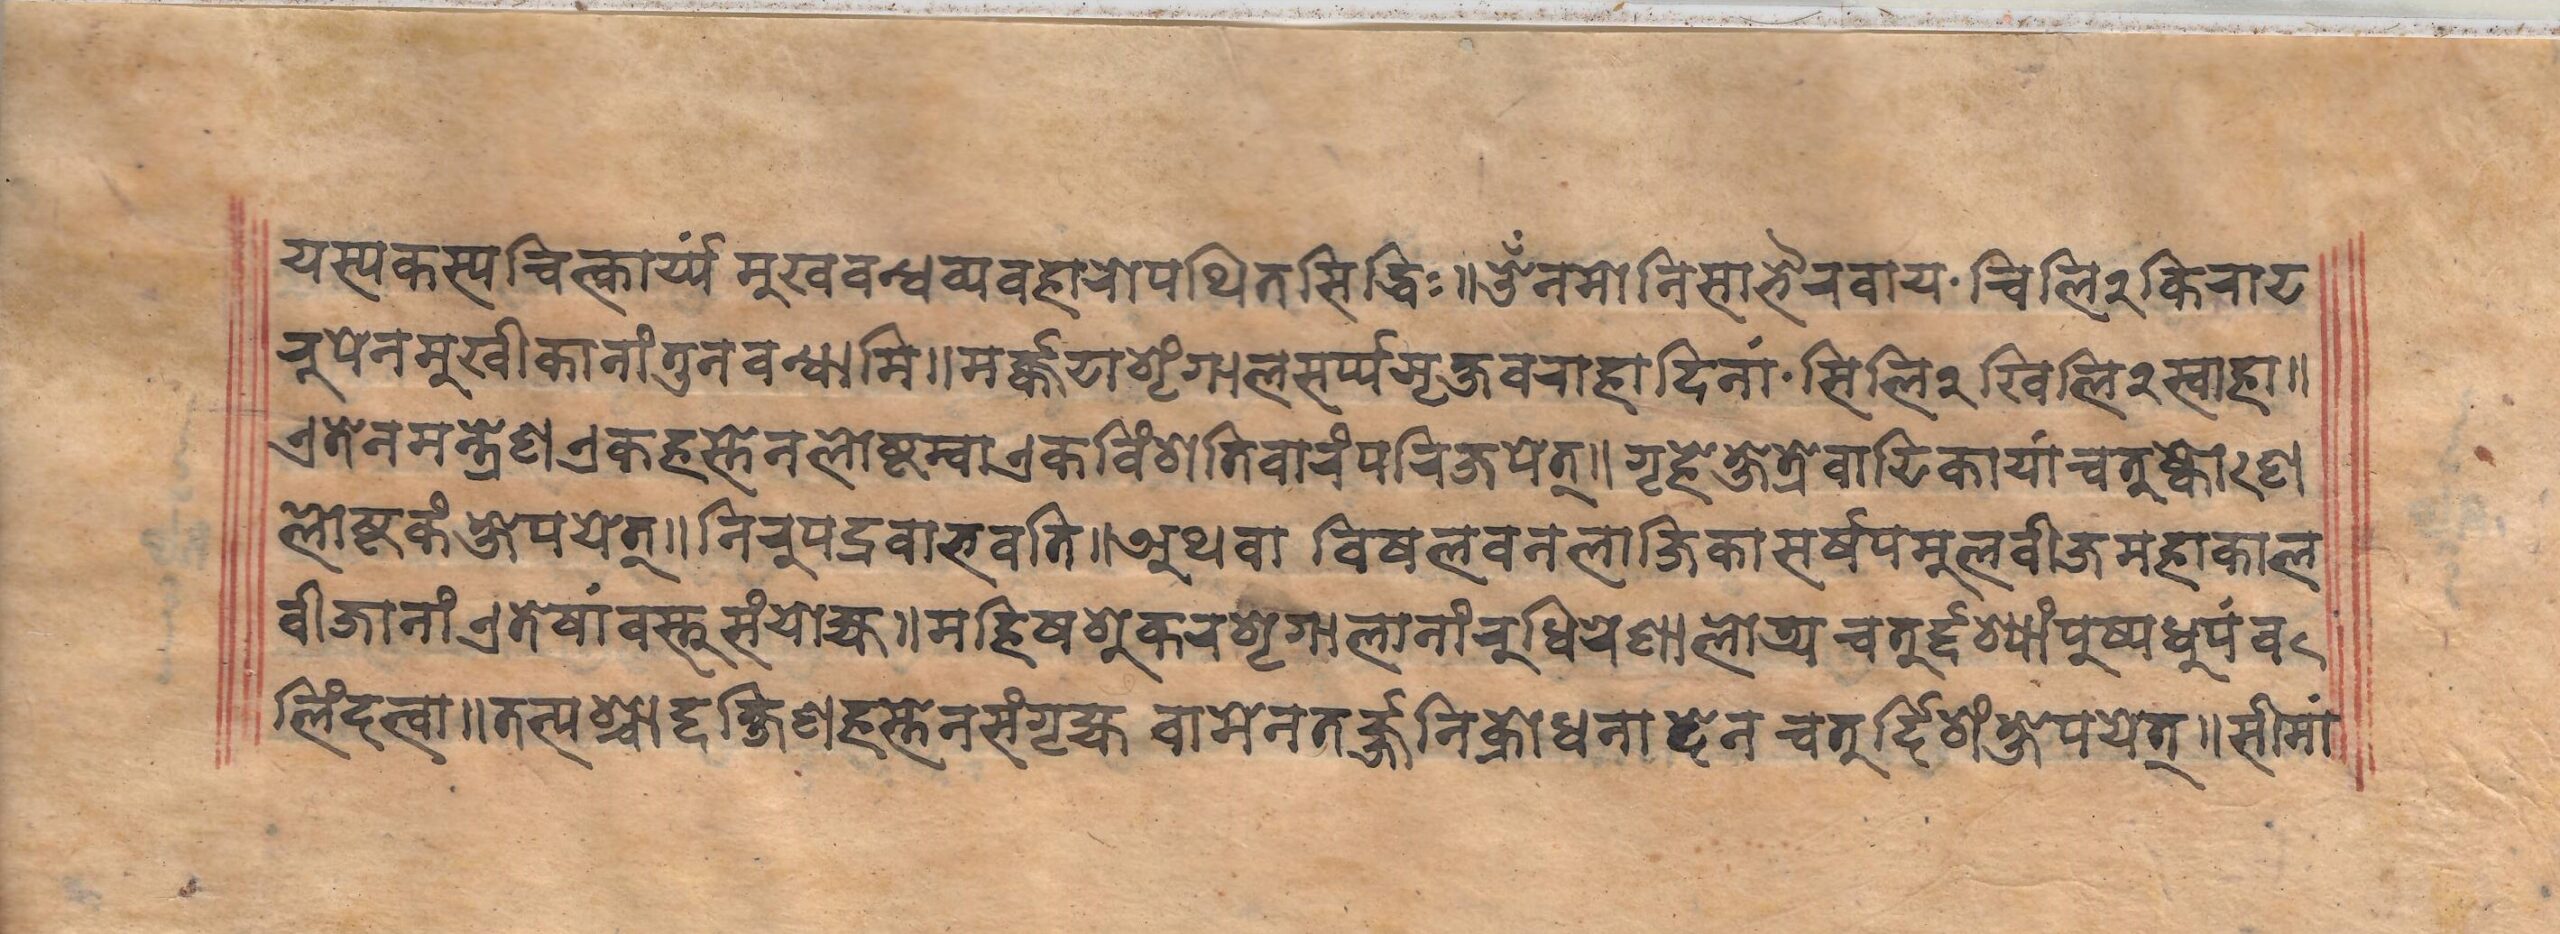 यस्यकस्यचित्कार्य्यं मुखवन्धव्यवहारोपथितसिद्धिः॥ॐनमोनिसाभैरवाय·चिलि२किराट
रुपेनमुखीकानांतुनवन्धामि॥मर्क्कटाशृंगालसर्प्पमृक्षवराहादिनां·सिलि२खिलि२स्वाहा॥
एतेनमन्त्रेणएकहस्तेनलोष्टम्वाएकविंशतिवारंपरिजपेत्॥गृहेक्षेत्रेवाटिकायांचतुष्कोण
लोष्टकंक्षेपयेत्॥निरुपद्रवाभवति॥अथवा विषलवनलाजिकासर्षपमुलवीजमहाकाल
वीजानांएतेषांवस्तुसंयोज्य॥महिषशुकरशृगालानांरुधिरेणालोड्य चतुर्द्दश्यांपुष्पधुपंव
लिंदत्वा॥तत्पश्चाद्दक्षिणहस्तेनसंगृह्य वामेनतर्ज्जनिक्रोधनादेन चतुर्दिशंक्षेपयेत्॥सीमां